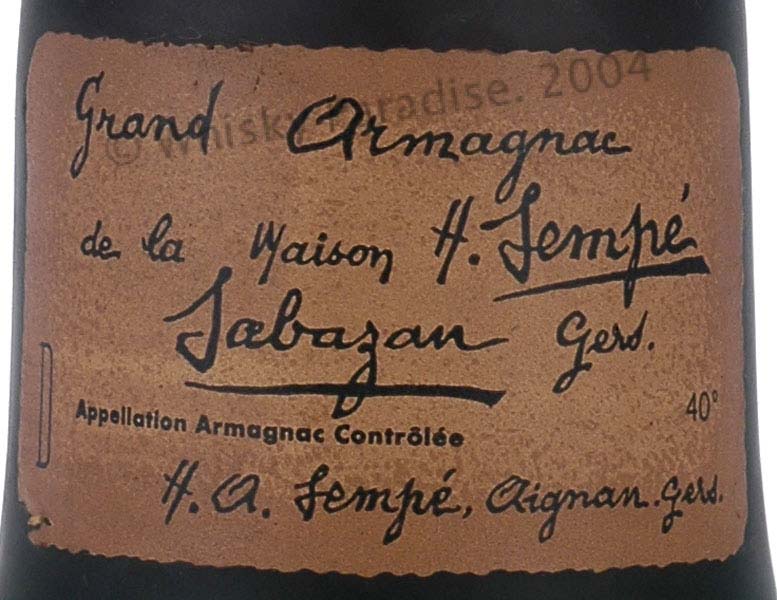 © Whisky Paradise. 2004
Grand Armagnac
de la Maison H. Sempé
Sabazan Gers.
40°
Appellation Armagnac Contrôlée
H. A. Sempé, Aignan. Gers.